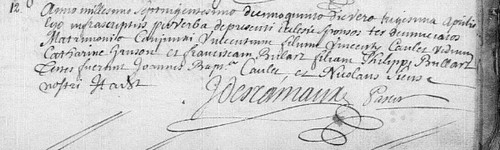 12. Anno millesimo septingentesimo decimoquinto die vero trigesima Aprilis
Ego infrascriptus per verba de presenti Eclesie Sponsos ter denunciatos
Matrimonio Conjunxi Vincentium filium Vincentii Caulet viduum
Catharine Ponson et franciscam Brulart filiam Philippi Brullart
Testes fuerunt Joannes Bapt. Caulet, et Nicolaus
nostri
J Descamaux Pastor